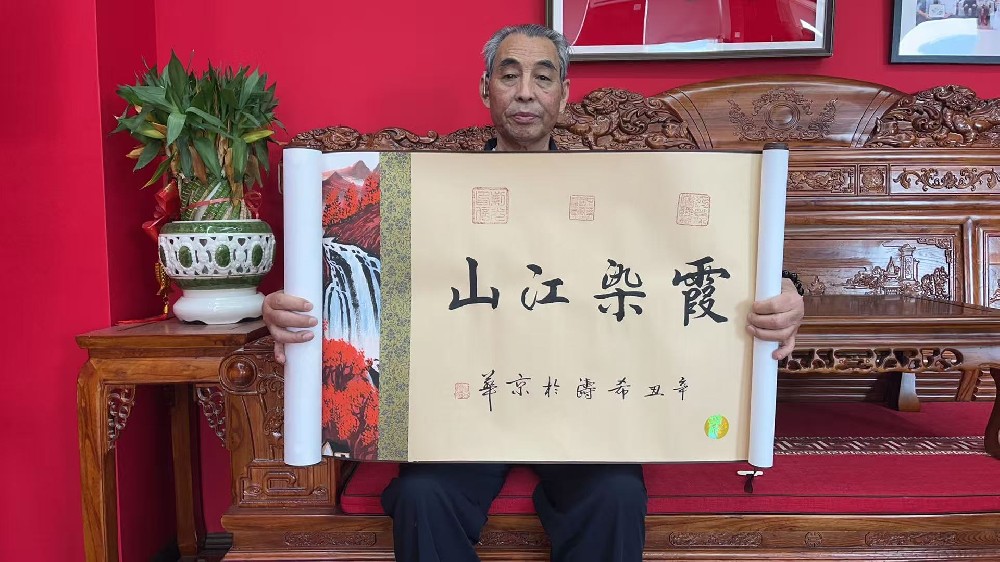 霞染江山
辛丑希濤於京華